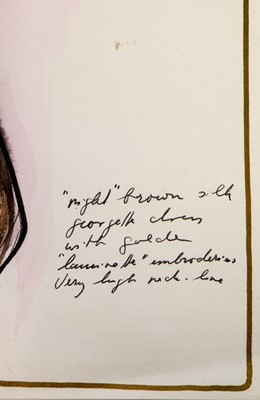 "night" brown silk
georgette dress
with golden
"laminette" embroideries
Very high neck-line